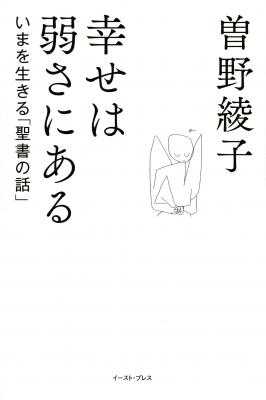 曽野綾子
幸せは
弱さにある
いまを生きる「聖書の話」
イースト・プレス